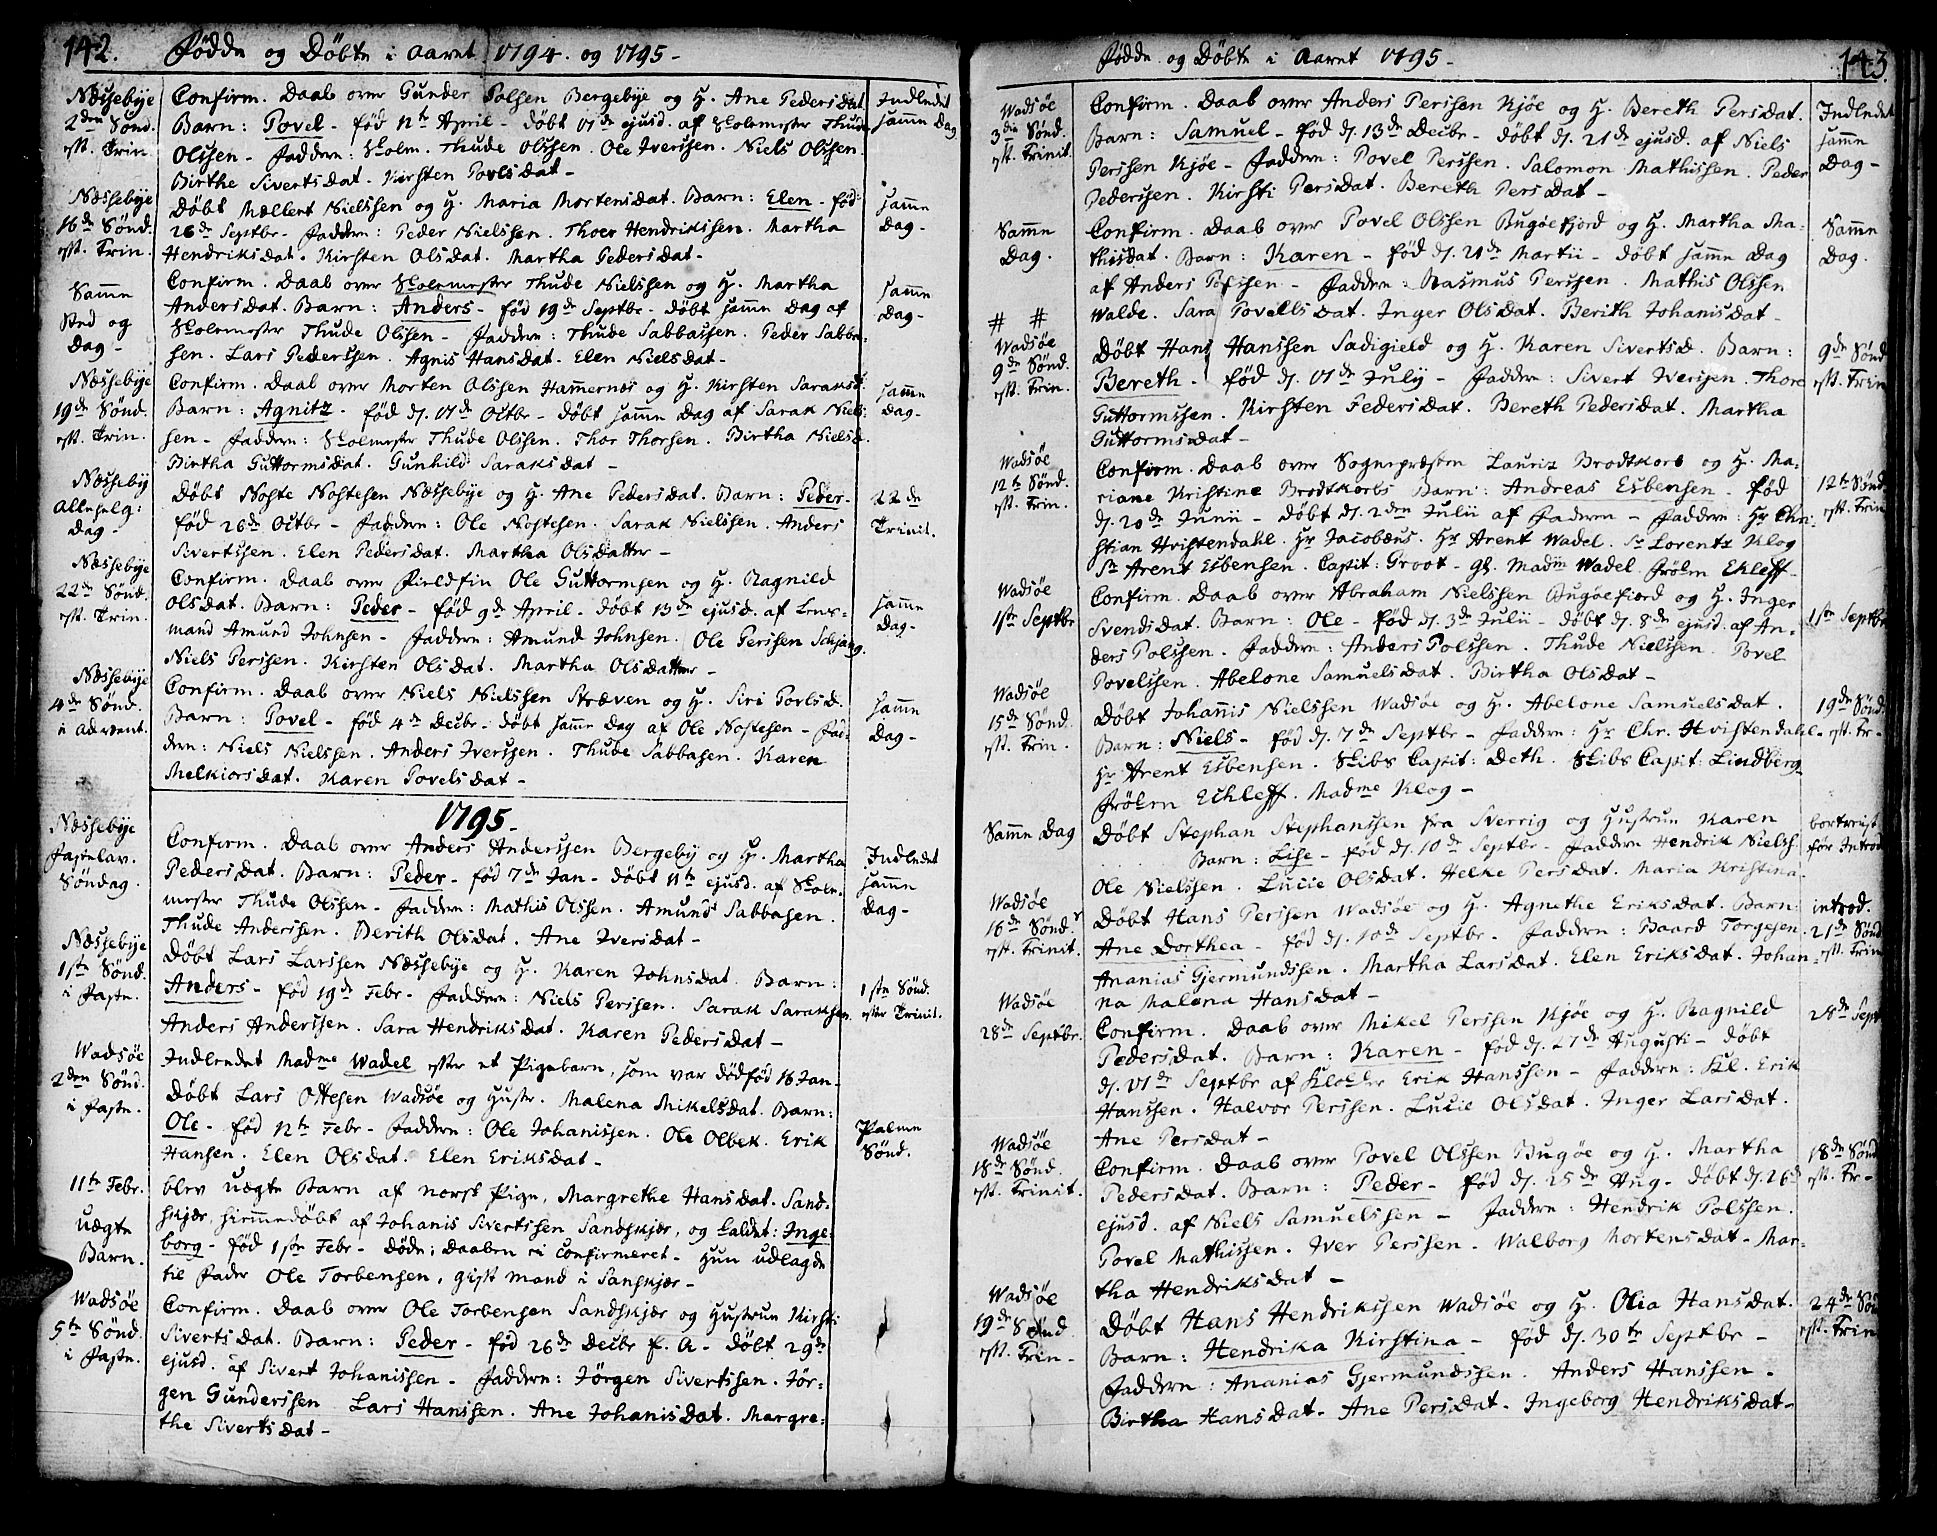 142. Fødde og Døbte i Aaret 1794. og 1795 -
Næssebye
2den Sønd.
eft. Trin.
Confirm. Daab over Gunder Polsen Bergebye og H. Ane Pedersdat.
Barn: Povel - fød 12te April - døbt 17de ejusd. af Skolemester Thude
Olssen - Faddere: Skolm. Thude Olssen. Ole Iverssen. Niels Olssen.
Birthe Sivertsdat. Kirsten Povlsdat -
Indledet
samme Dag
Næssebye
16de Sønd.
eft. Trin.
Døbt Mellert Nielssen og H. Maria Mortensdat. Barn: Elen - fød
26de Septbr - Faddere: Peder Nielssen. Thoer Hendrikssen. Martha
Hendriksdat. Kirsten Olsdat. Martha Pedersdat -
samme
Dag -
Samme
Sted og
Dag -
Confirm. Daab over Skolemester Thude Nielssen og H. Martha
Andersdat. Barn: Anders - fød 19de Septbr - døbt samme Dag af
Skolemester Thude Olssen - Faddere: Thude Sabbassen. Peder Sabbas-
sen. Lars Pederssen. Agnis Hansdat. Elen Nielsdat -
samme
Dag -
Næssebye
19de Sønd.
eft. Trin.
Confirm. Daab over Morten Olssen Hammernæs og H. Kirsten Saraksd.
Barn: Agnitz - fød d. 17de Octbr - døbt samme Dag af Sarak Niels-
sen - Faddere: Skolemester Thude Olssen. Thor Thorsen. Birtha Nielsd.
Birtha Guttormsdat. Gunhild Saraksdat -
samme
Dag -
Næsseby
Allehelg:
Dag -
Døbt Noste Nostesen Næssebye og H. Ane Pedersdat. Barn: Peder -
fød 26de Octbr - Faddere: Ole Nostesen. Sarak Nielssen. Anders
Sivertssen. Elen Pedersdat. Martha Olsdatter -
22de
Trinit.
Næssebye
22de Sønd.
eft. Trin.
Confirm. Daab over Fieldfin Ole Guttormsen og H. Ragnild
Olsdat. Barn: Peder - fød 9de April - døbt 13de ejusd. af Lens-
mand Amund Johnsen - Faddere: Amund Johnsen. Ole Perssen Schjang.
Niels Perssen. Kirsten Olsdat. Martha Olsdatter -
samme
Dag -
Næssebye
4de Sønd.
i Advent.
Confirm. Daab over Niels Nielssen Stræven og H. Siri Povlsd.
Barn: Povel - fød 4de Decbr - døbt samme Dag af Ole Nostesen - Fad-
dere: Niels Nielssen. Anders Iverssen. Thude Sabbasen. Karen
Melkiorsdat. Karen Povelsdat -
samme
Dag -
1795 -
Næssebye
Fastelav.
Søndag.
Confirm. Daab over Anders Anderssen Bergeby og H. Martha
Pedersdat. Barn: Peder - fød 7de Jan - døbt 11te ejusd. af Skole-
mester Thude Olssen - Faddere: Mathis Olssen. Amund Sabbasen.
Thude Anderssen. Berith Olsdat. Ane Iversdat -
Indledet
samme
Dag -
Næssebye
1ste Sønd.
i Faste.
Døbt Lars Larssen Næssebye og H. Karen Johnsdat. Barn:
Anders - fød 19de Febr - Faddere: Niels Perssen. Sarak Saraksen.
Anders Anderssen. Sara Hendriksdat. Karen Pedersdat -
1ste Sønd.
efter Trinit.
Wadsöe
2den Sønd.
i Faste.
Indledet Madme Wadel efter et Pigebarn, som var dödfød 16 Jan -
Døbt Lars Ottesen Wadsöe og Hustr. Malena Mikelsdat. Barn:
Ole - fød 12te Febr - Faddere: Ole Johanissen. Ole Olbek. Erik
Hansen. Elen Olsdat. Elen Eriksdat -
Palme
Sønd.
11te Febr.
uægte
Barn.
blev uægte Barn af norsk Pige, Margrethe Hansdat. Sand-
skjær, hiemmedøbt af Johanis Sivertssen Sandskjær, og kaldet: Inge-
borg - fød 1ste Febr - døde; daaben ei confirmeret - Hun udlagde
til Fader Ole Torbensen, gift mand i Sanskjær -
Wadsöe
5te Sønd.
i Faste.
Confirm. Daab over Ole Torbensen Sandskjær og Hustrue Kirsti
Sivertsdat. Barn: Peder - fød 26de Decbr f. A - døbt 29de
ejusd. af Sivert Johanissen - Faddere: Jörgen Sivertssen. Jör-
gen Gunderssen Lars Hanssen. Ane Johanisdat. Margre-
the Sivertsdat -
Fødde og Døbte i Aaret 1795 - 143.
Wadsöe
3die Sønd.
eft. Trinit.
Confirm. Daab over Anders Perssen Kjöe og H. Bereth Persdat.
Barn: Samuel - fød d. 13de Decbr - døbt d. 21de ejusd. af Niels
Perssen Kjöe - Faddere: Povel Perssen. Salomon Mathissen. Peder
Pederssen. Kirsti Persdat. Bereth Persdat -
Indledet
samme
Dag -
Samme
Dag.
Confirm. Daab over Povel Olssen Bugöefjord og H. Martha Ma-
thisdat. Barn: Karen - fød d. 21de Martii - døbt samme Dag
af Anders Polssen - Faddere: Rasmus Perssen. Mathis Olssen
Walde. Sara Povelsdat. Inger Olsdat. Berith Johanisdat -
Samme
Dag.
# #
Wadsöe
9de Sønd.
eft. Trin.
Døbt Hans Hanssen Sadigield og H. Karen Sivertsd. Barn:
Bereth - fød d. 17de July - Faddere: Sivert Iverssen. Thore
Guttormssen. Kirsten Pedersdat. Bereth Pedersdat. Martha
Guttormsdat -
9de Sønd
eft. Trin
Wadsöe
12te Sønd.
eft. Trin.
Confirm. Daab over Sognepræsten Lauritz Brodtkorb og H. Ma-
riane Kristine Brodtkorbs Barn: Andreas Esbensen - fød
d. 20de Junii - døbt d. 2den Julii af Faderen - Faddere: Hr Chri-
stian Hvistendahl. Hr Jacobæus. Hr Arent Wadel. Sr Lorentz Klog
Sr Arent Esbensen. Capit: Groot - gl. Madme Wadel. Frøken Ekleff -
12te Sønd.
eft. Trin
Wadsöe
1ste Septbr
Confirm. Daab over Abraham Nielssen Bugöefiord og H. Inger
Svendsdat. Barn: Ole - fød d. 3de Julii - døbt d. 8de ejusd. af An-
ders Polssen. Faddere: Anders Polssen. Thude Nielssen. Povel
Povelssen. Abelone Samuelsdat. Birtha Olsdat -
1ste Septbr
Wadsöe
15de Sønd.
eft. Trin.
Døbt Johannis Nielssen Wadsöe og H. Abelone Samuelsdat.
Barn: Niels - fød d. 7de Septbr - Faddere: Hr Chr. Hvistendahl -
Hr Arent Esbensen. Skibs Capit: Deth. Skibs Capit: Lindberg -
Frøken Eckleff. Madme Klog -
19de Sønd.
eft. Tr -
Samme Dag
Døbt Stephan Stephanssen fra Sverrig og Hustrue Karen
Barn: Lise - fød d. 10de Septbr - Faddere Hendrik Nielss.
Ole Nielssen. Lucie Olsdat. Helke Persdat. Maria Kristina -
bortreist
før Introd.
Wadsöe
16de Sønd.
eft. Trinit.
Døbt Hans Perssen Wadsöe og H. Agnethe Eriksdat. Barn:
Ane Dorthea - fød d. 10de Septbr - Faddere: Baard Torgesen.
Ananias Gjermundssen. Martha Larsdat. Elen Eriksdat. Johan-
na Malena Hansdat -
introd.
21de Sønd
eft. Trin
Wadsöe
28de Septbr.
Confirm. Daab over Mikel Perssen Kjöe og H. Ragnild
Pedersdat. Barn: Karen - fød d. 27de Augusti - døbt
d. 17de Septbr af Klokker Erik Hanssen - Faddere: Kl. Erik
Hanssen. Halvor Perssen. Lucie Olsdat. Inger Larsdat.
Ane Persdat -
28de Sept
Wadsöe
18de Sønd.
eft. Trinit.
Confirm. Daab over Povel Olssen Bugöe og H. Martha
Pedersdat. Barn: Peder - fød d. 25de Aug - døbt d. 26d
ejusd. af Niels Samuelssen - Faddere: Hendrik Polssen.
Povel Mathissen. Iver Perssen. Walborg Mortensdat - Mar-
tha Hendriksdat -
18de Sønd
eft. Tr -
Wadsöe
19de Sønd.
eft. Trin -
Døbt Hans Hendrikssen Wadsöe og H. Olia Hansdat.
Barn: Hendrika Kirstina - fød d. 30te Septbr -
Faddere: Ananias Gjermundssen. Anders Hanssen -
Birtha Hansdat - Ane Persdat - Ingeborg Hendriksdat -
24de Søn
eft. Trin